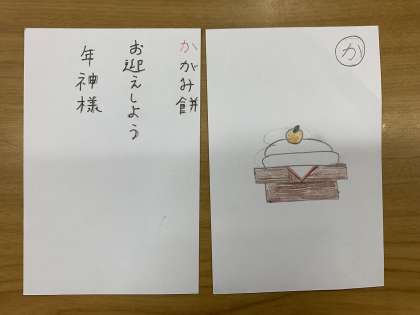 かがみ餅
お迎えしよう
年神様
か